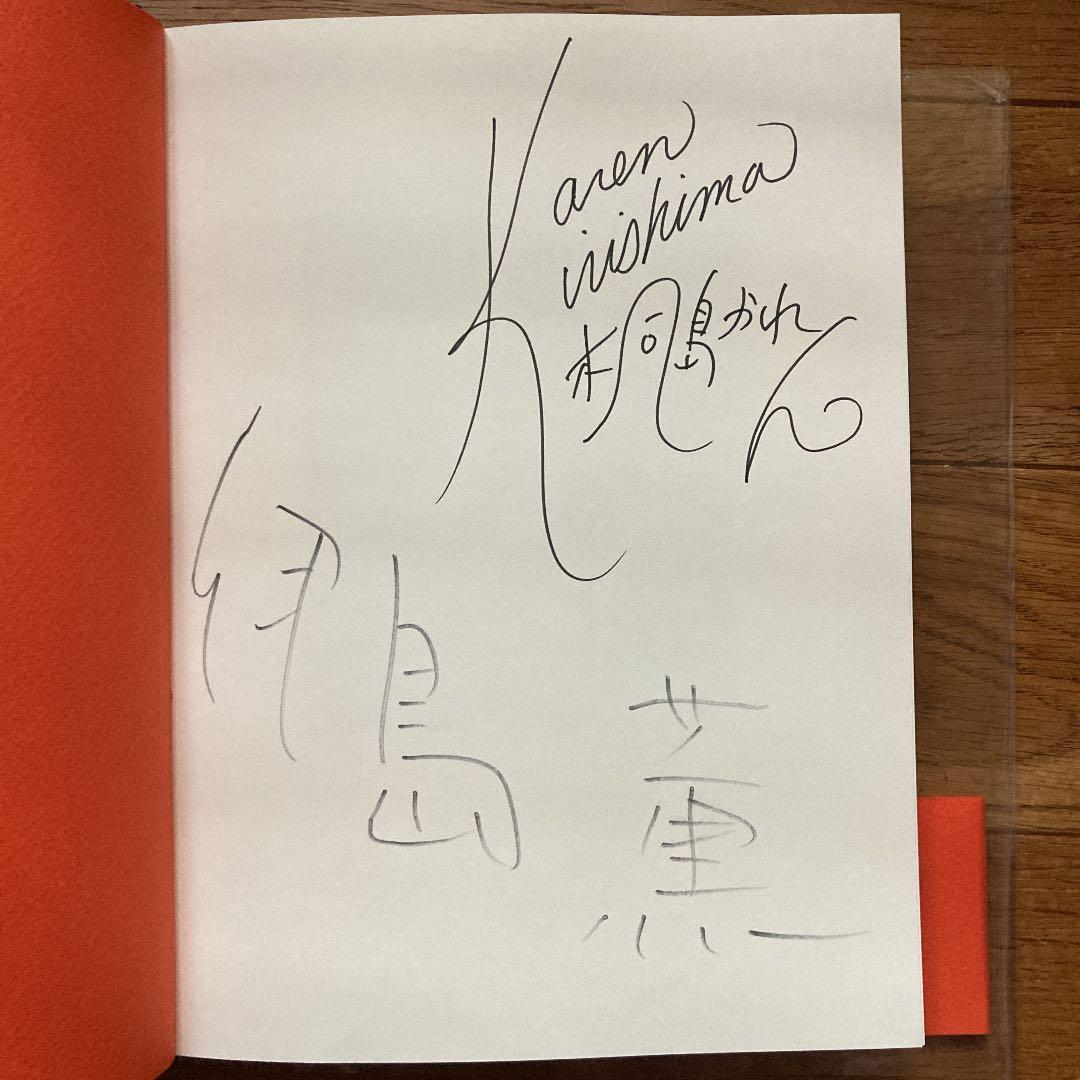 Karen
Kirishima
桐島かれん
伊島 薫